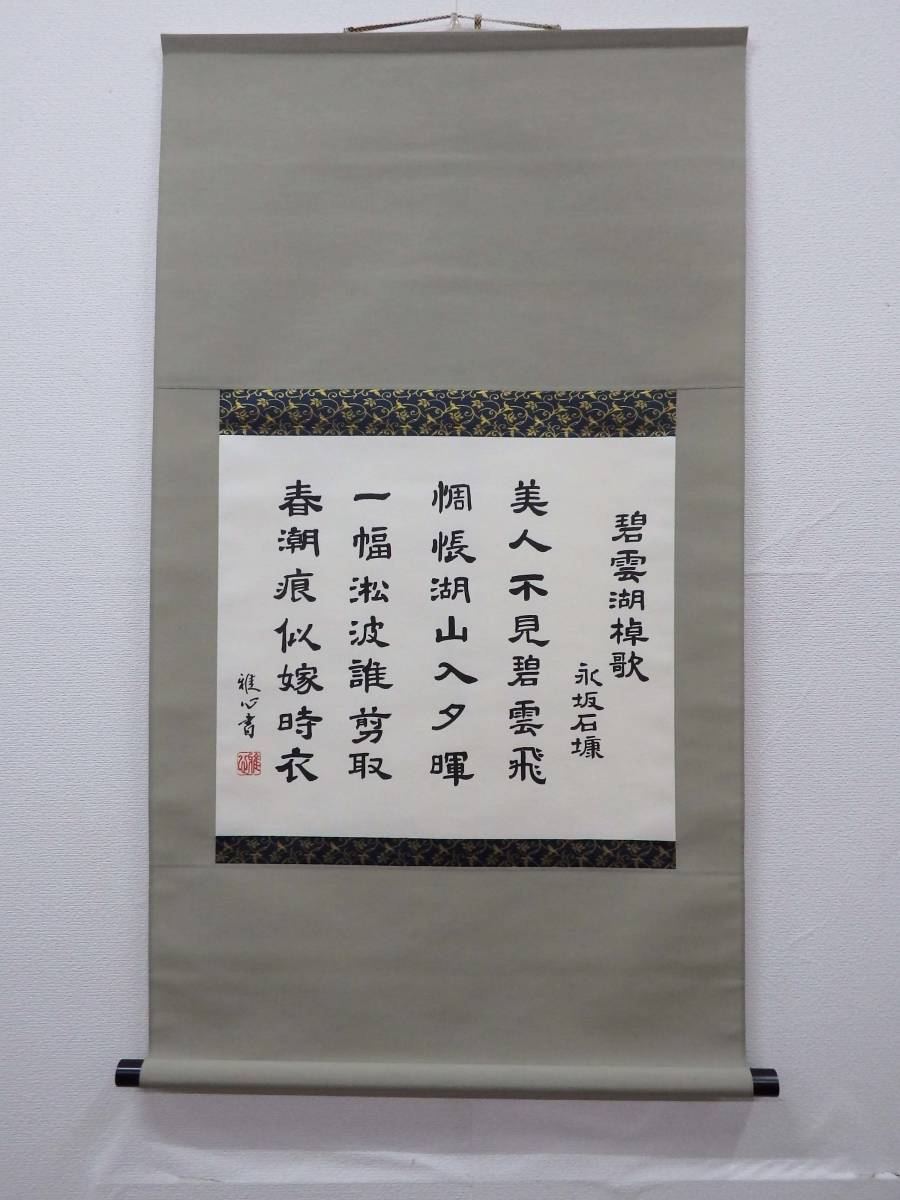 碧雲湖棹歌
永坂石壗
美人不見碧雲飛
惆悵湖山入夕暉
一幅淞波誰剪取
春潮痕似嫁時衣
雅心書
雅心